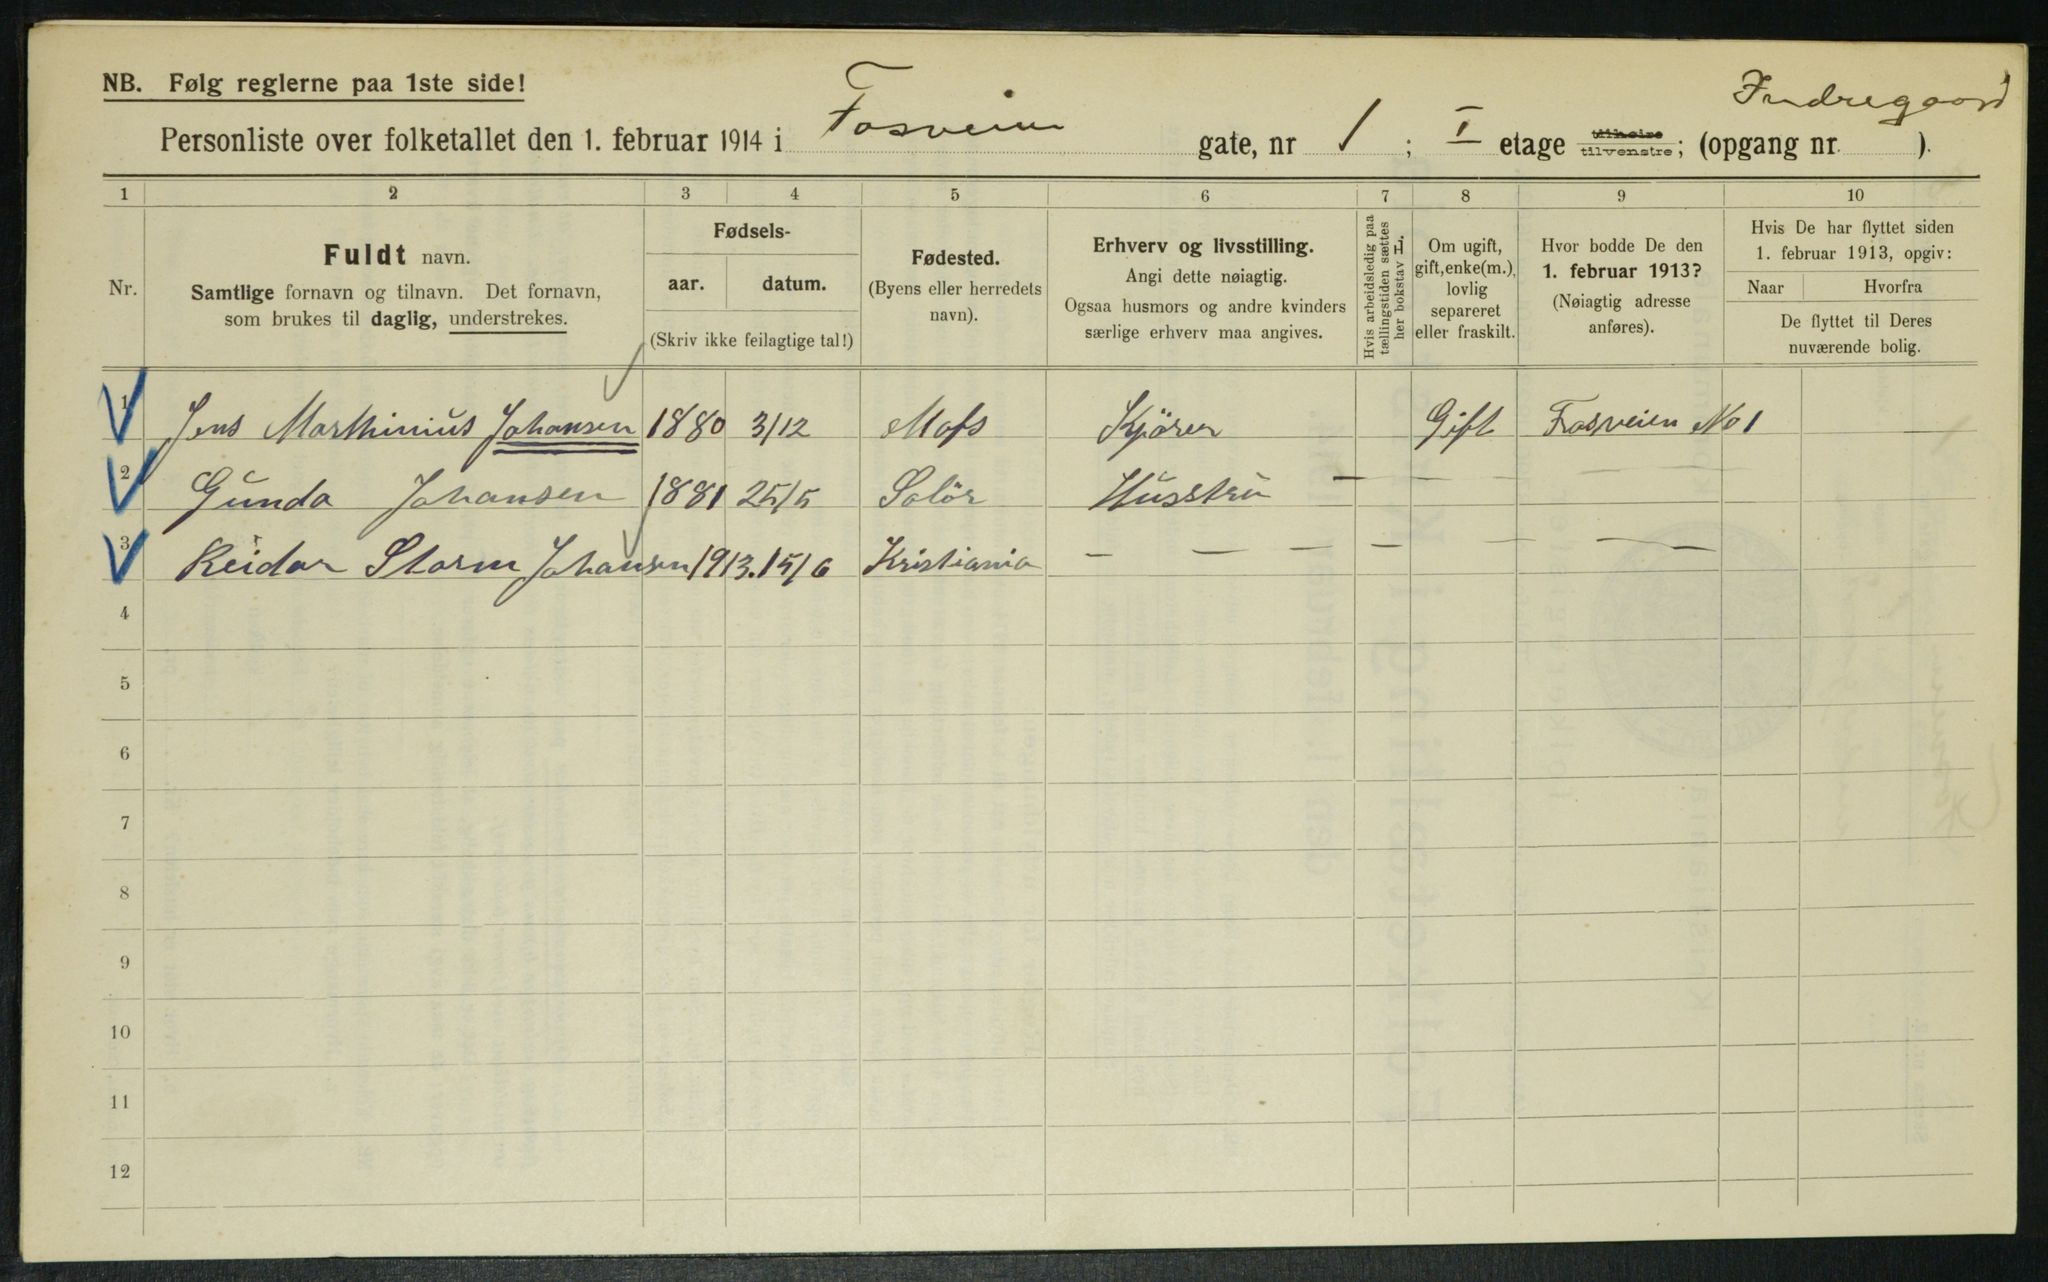 NB. Følg reglerne paa 1ste side!
Indregaard
Personliste over folketallet den 1. februar 1914 i Fosveien gate, nr 1 ; I etage tilhøire tilvenstre; (opgang nr ).
1 2 3 4 5 6 7 8 9 10
Nr.
Fuldt navn.
Samtlige fornavn og tilnavn. Det fornavn,
som brukes til daglig, understrekes.
Fødsels-
aar. datum.
(Skriv ikke feilagtige tal!)
Fødested.
(Byens eller herredets
navn).
Erhverv og livsstilling.
Angi dette nøiagtig.
Ogsaa husmors og andre kvinders
særlige erhverv maa angives.
Hvis arbeidsledig paa
tællingstiden sættes
her bokstav L.
Om ugift,
gift, enke(m.),
lovlig
separeret
eller fraskilt.
Hvor bodde De den
1. februar 1913?
(Nøiagtig adresse
anføres).
Hvis De har flyttet siden
1. februar 1913, opgiv:
Naar Hvorfra
De flyttet til Deres
nuværende bolig.
1 Jens Marthinius Johansen 1880 3/12 Mofs Kjörer Gift Fosveien No 1
2 Gunda Johansen 1881 25/5 Solör Hüsstrü — — — — — —
3 Reidar Storm Johansen 1913. 15/6 Kristiania — — — — — — —
4
5
6
7
8
9
10
11
12